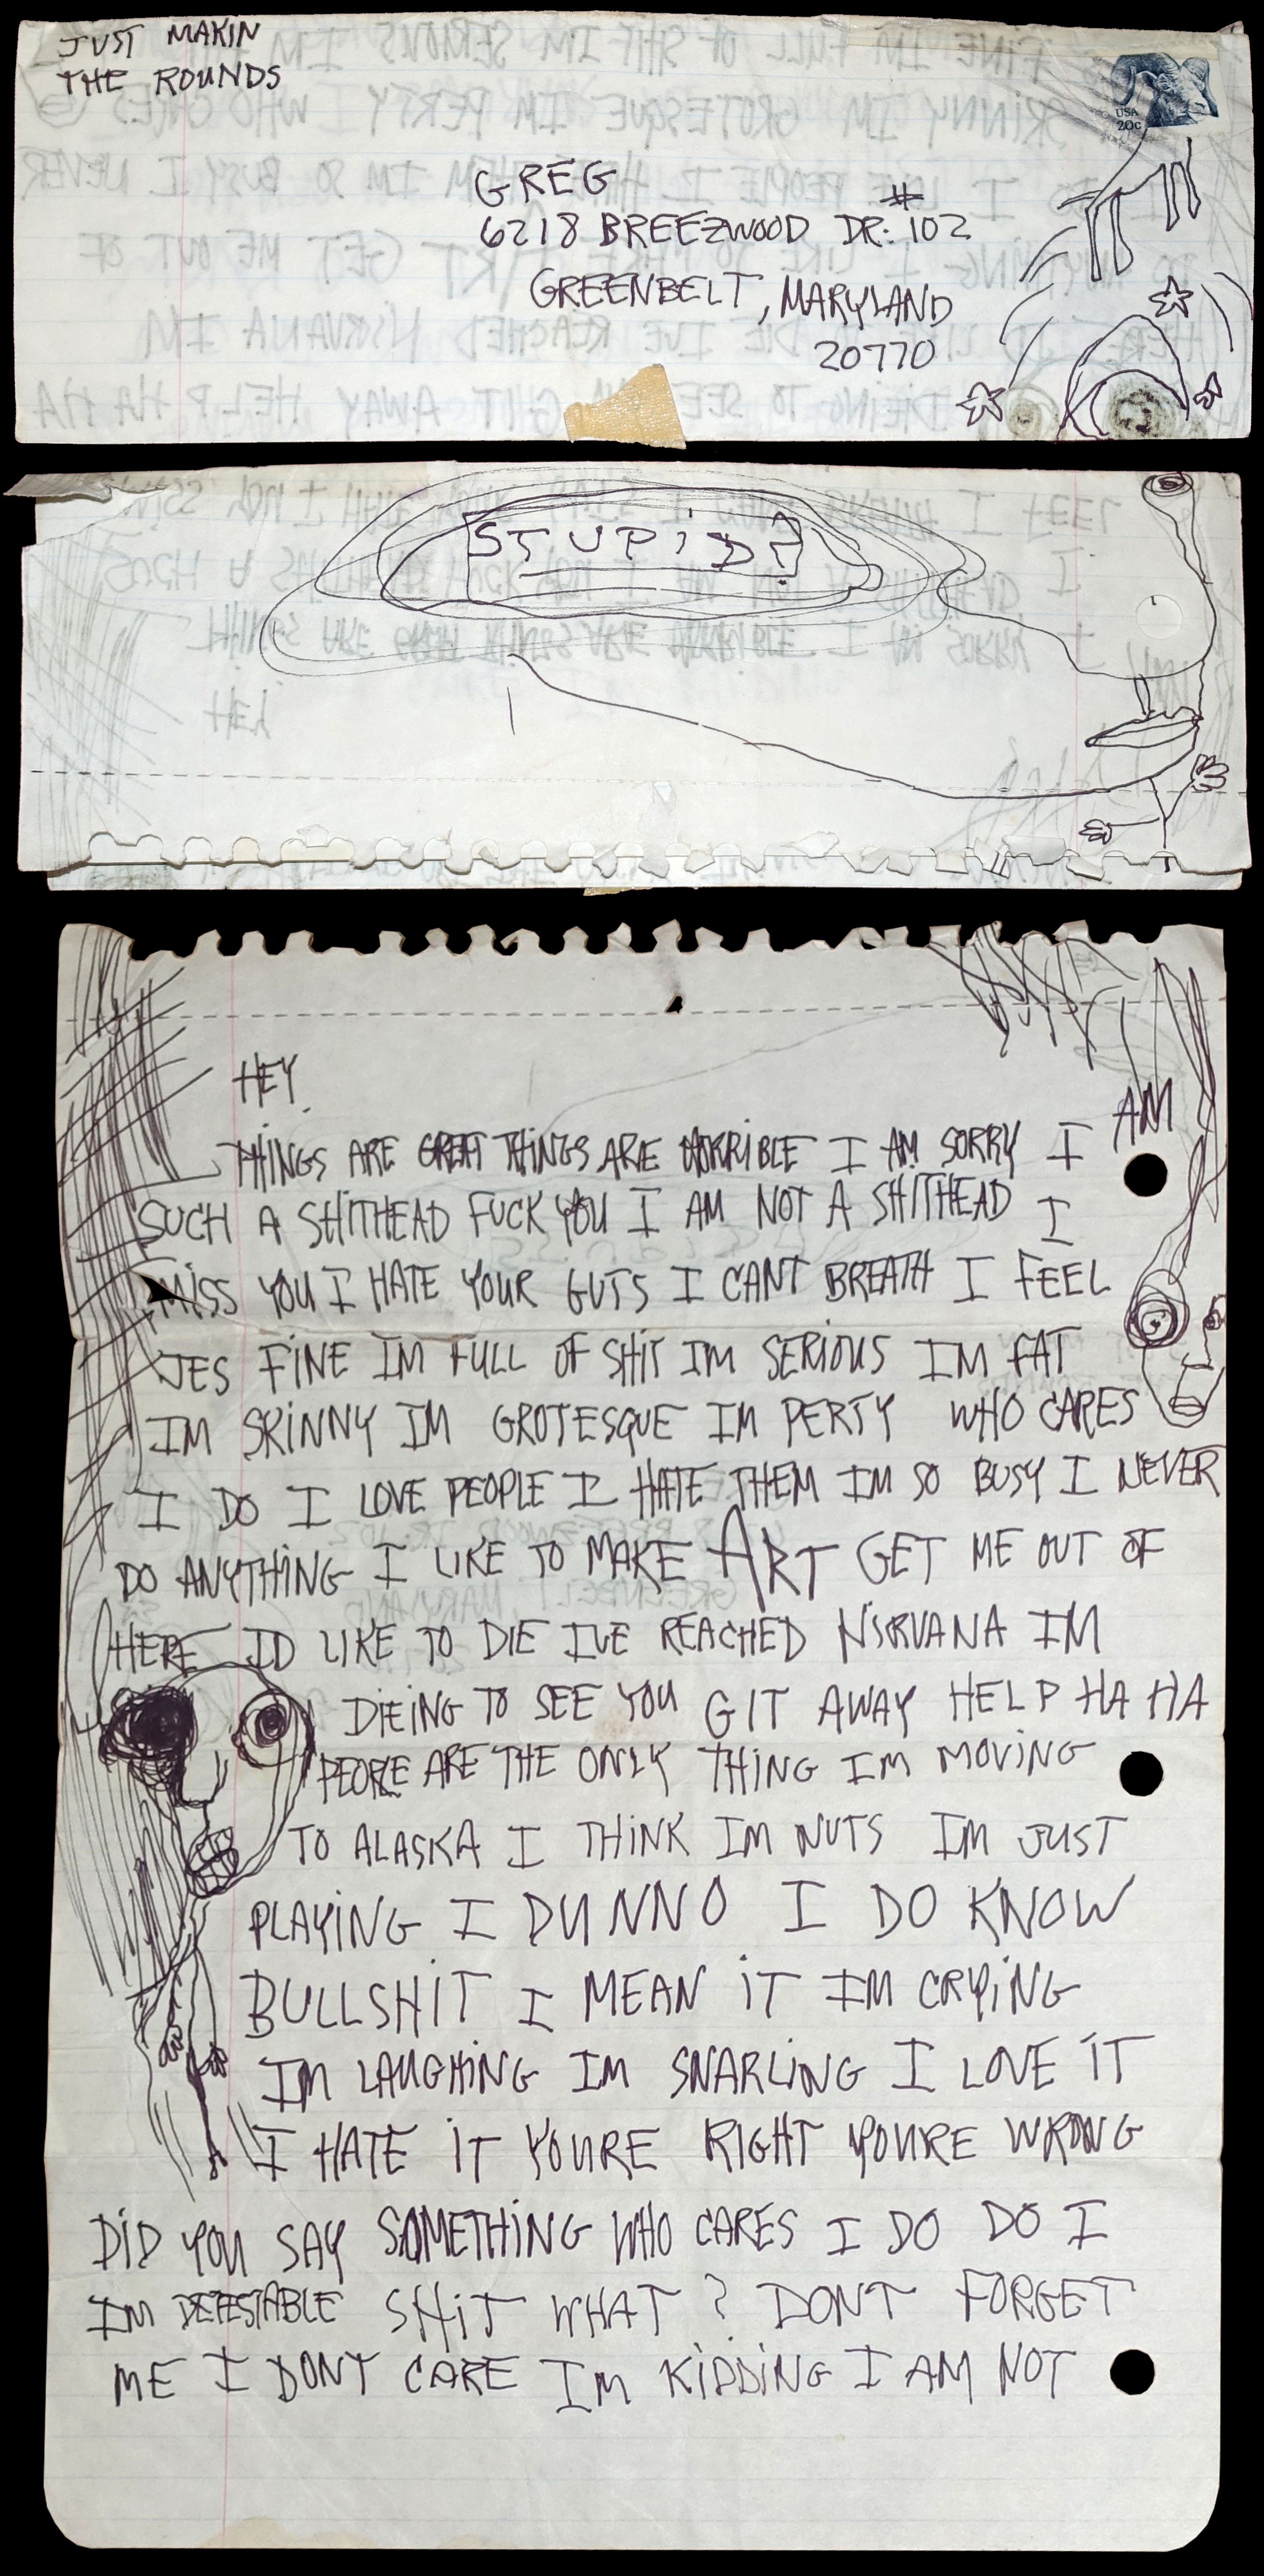 JUST MAKIN
THE ROUNDS
USA
20c
GREG
6218 BREEZWOOD DR. #102
GREENBELT, MARYLAND
20770
STUPID?
HEY
THINGS ARE GREAT THINGS ARE HORRIBLE I AM SORRY I AM
SUCH A SHITHEAD FUCK YOU I AM NOT A SHITHEAD I
MISS YOU I HATE YOUR GUTS I CANT BREATH I FEEL
JES FINE IM FULL OF SHIT IM SERIOUS IM FAT
IM SKINNY IM GROTESQUE IM PERTY WHO CARES
I DO I LOVE PEOPLE I HATE THEM IM SO BUSY I NEVER
DO ANYTHING I LIKE TO MAKE ART GET ME OUT OF
HERE ID LIKE TO DIE IVE REACHED NIRVANA IM
DIEING TO SEE YOU GIT AWAY HELP HA HA
PEOPLE ARE THE ONLY THING IM MOVING
TO ALASKA I THINK IM NUTS IM JUST
PLAYING I DUNNO I DO KNOW
BULLSHIT I MEAN IT IM CRYING
IM LAUGHING IM SNARLING I LOVE IT
I HATE IT YOURE RIGHT YOURE WRONG
DID YOU SAY SOMETHING WHO CARES I DO DO I
IM DETESTABLE SHIT WHAT? DONT FORGET
ME I DONT CARE IM KIDDING I AM NOT